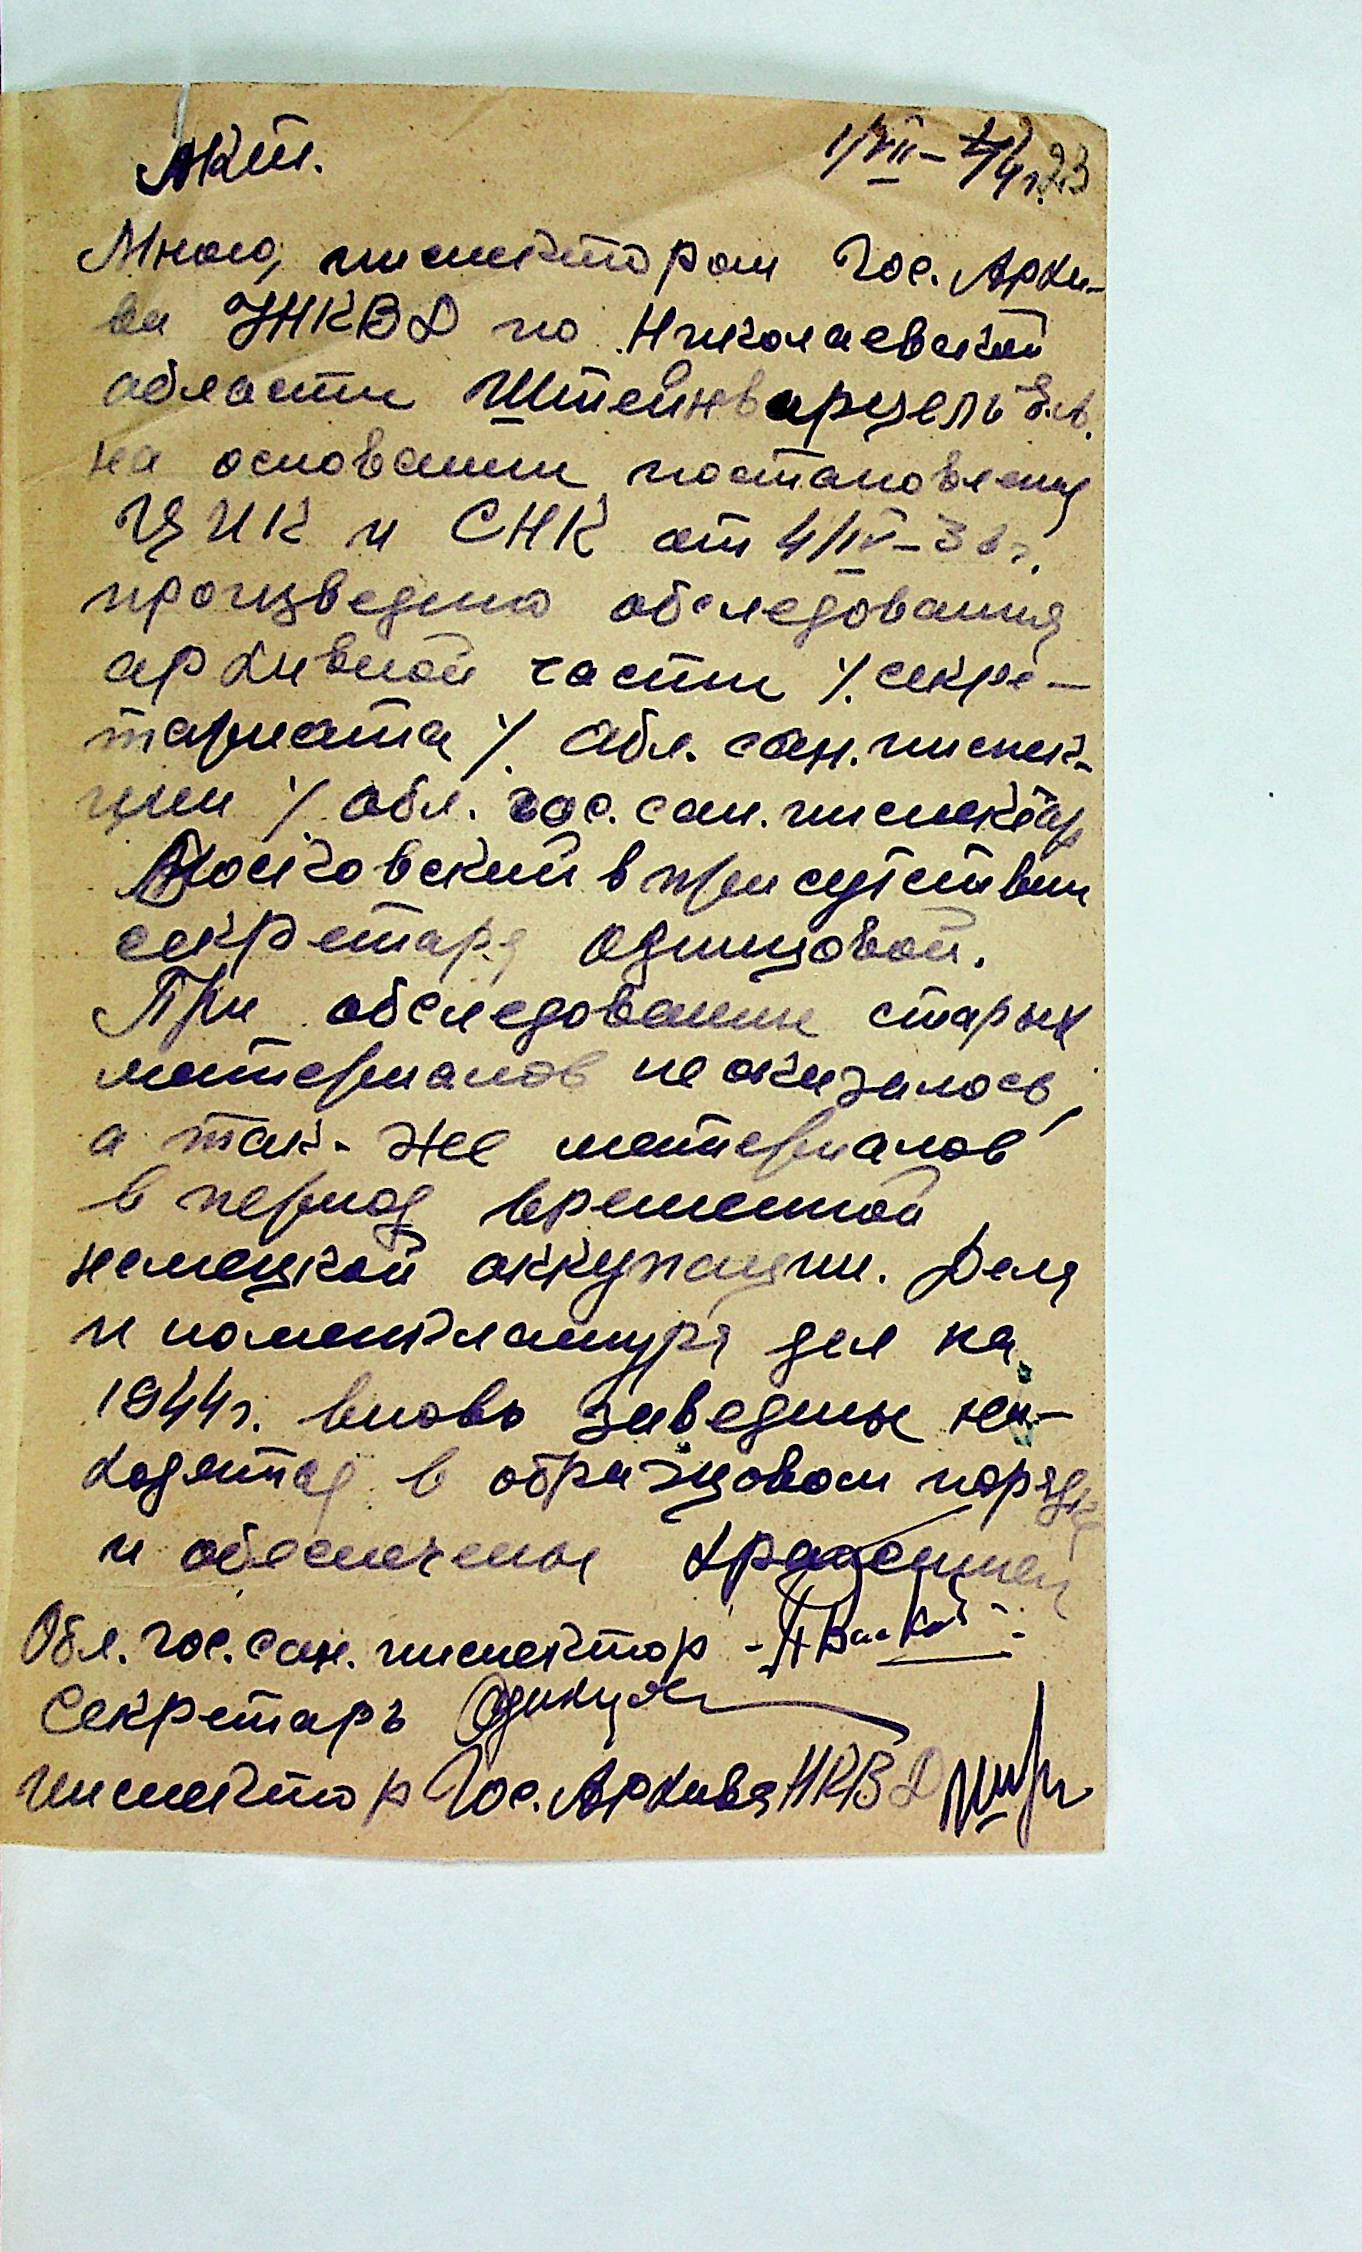 Акт. 1/VII-44г. 23
Мною, инспектором Гос. Архи-
ва УНКВД по Николаевской
области Штейнварцель
на основании постановления
ЦИК и СНК от 4/IV-36г.
произведено обследования
архивной части /. секре-
тариата /. Обл. сан. инспек-
ции /. обл. гос. сан. инспектор
в присутствии
секретаря Одинцовой.
При обследовании старых
материалов не оказалось,
а так-же материалов
в период временной
немецкой аккупации. Дела
и номенклатура дел на
1944г. вновь заведены на-
ходятся в образцовом порядке
и обеспечены хранением
Обл. гос. сан. инспектор -
Секретарь Одинцова
инспектор Гос. Архива НКВД